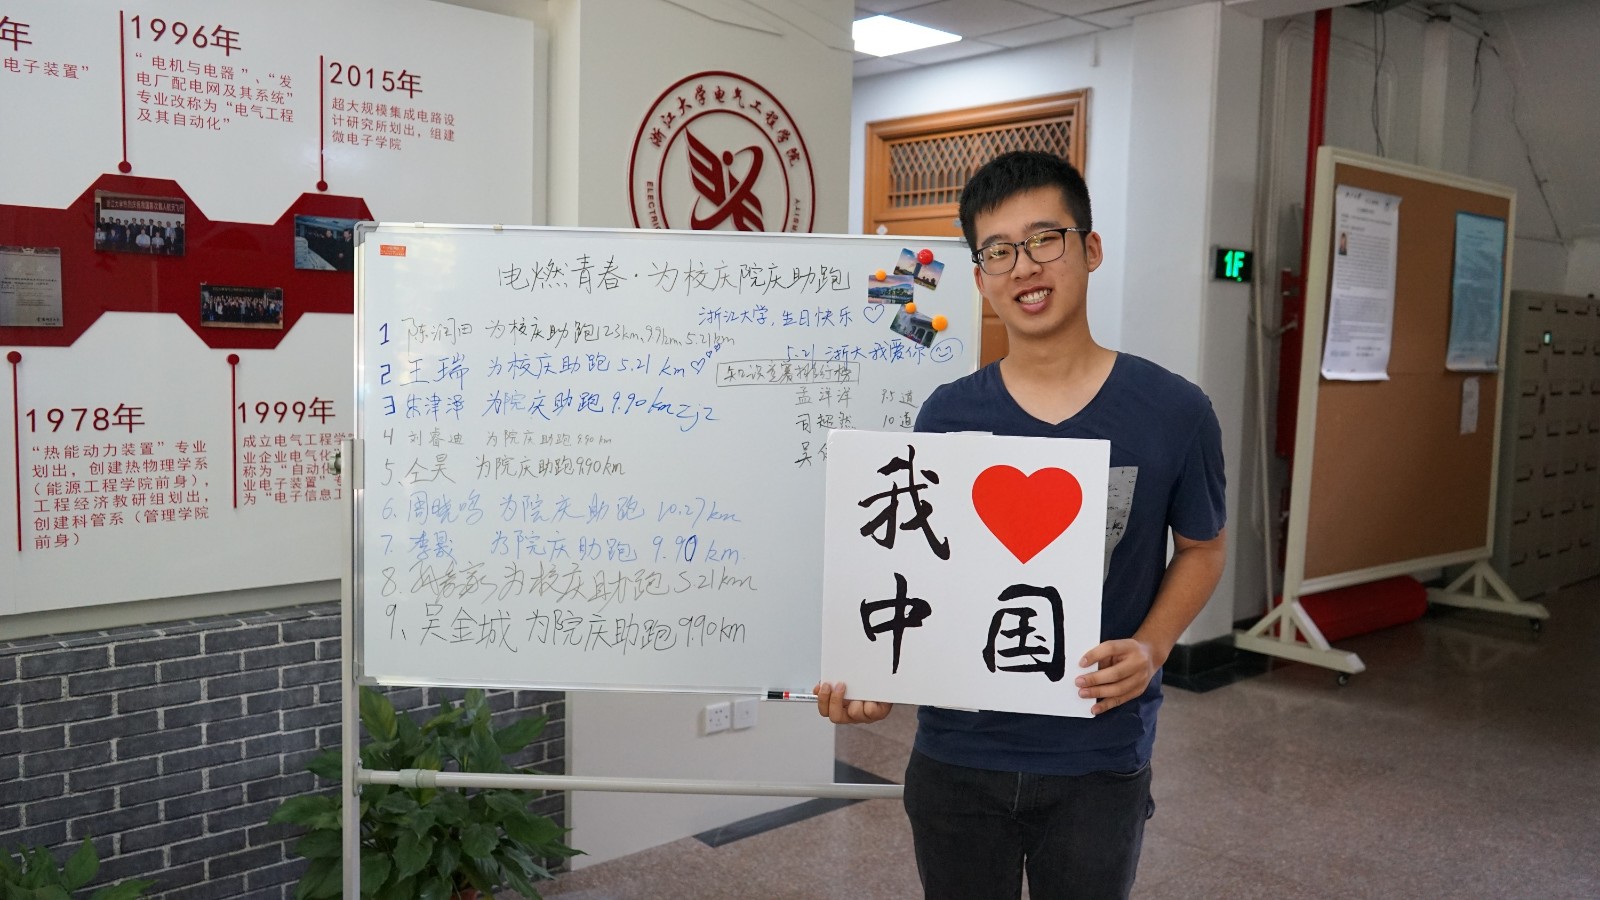 年
电子装置”
1996年
“电机与电器”、“发
电厂配电网及其系统”
专业改称为“电气工程
及其自动化”
2015年
超大规模集成电路设
计研究所划出，组建
微电子学院
1978年
“热能动力装置”专业
划出，创建热物理学系
（能源工程学院前身），
工程经济教研组划出，
创建科管系（管理学院
前身）
1999年
成立电气工程学
业企业电气化
称为“自动化
业电子装置”专
为“电子信息工
浙江大学电气工程学院
电燃青春·为校庆院庆助跑
浙江大学，生日快乐
5.21 浙大我爱你
1 陈润田 为校庆助跑 1.23km、9.9km、5.21km
2 王瑞 为校庆助跑 5.21 km
3 朱津泽 为院庆助跑 9.90km zjz
4 刘睿迪 为院庆助跑 9.90 km
5、仝昊 为院庆助跑 9.90km
6、周晓鸣 为院庆助跑 10.27km
7、李晟 为院庆助跑 9.90 km
8、为校庆助跑 5.21km
9、吴金城 为院庆助跑 9.90km
知识竞赛排行榜
孟洋洋
司超然 10道
吴
我
中 国
1F